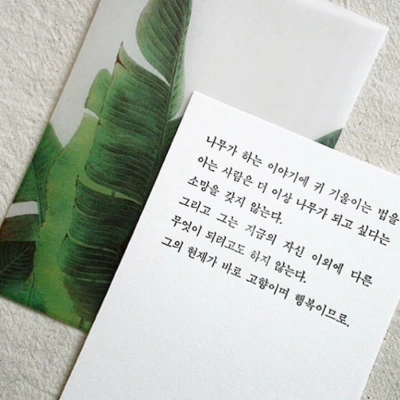 나무가 하는 이야기에 귀 기울이는 법을
아는 사람은 더 이상 나무가 되고 싶다는
소망을 갖지 않는다.
그리고 그는 지금의 자신 이외에 다른
무엇이 되려고도 하지 않는다.
그의 현재가 바로 고향이며 행복이므로.